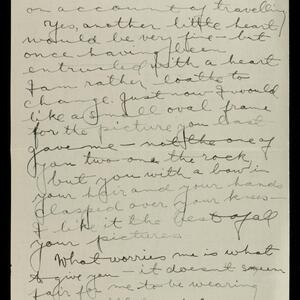 on account of travelling
Yes, another little heart
would be very fine — but
once having been
entrusted with a heart
I am rather loathe to
change. Just now I would
like a small oval frame
for the picture you last
gave me — not the one of
you two on the rock
but you with a bow in
your hair and your hands
clasped over your knees —
I like it the best of all
your pictures.
What worries me is what
to give you — it doesn't seem
fair for me to be wearing